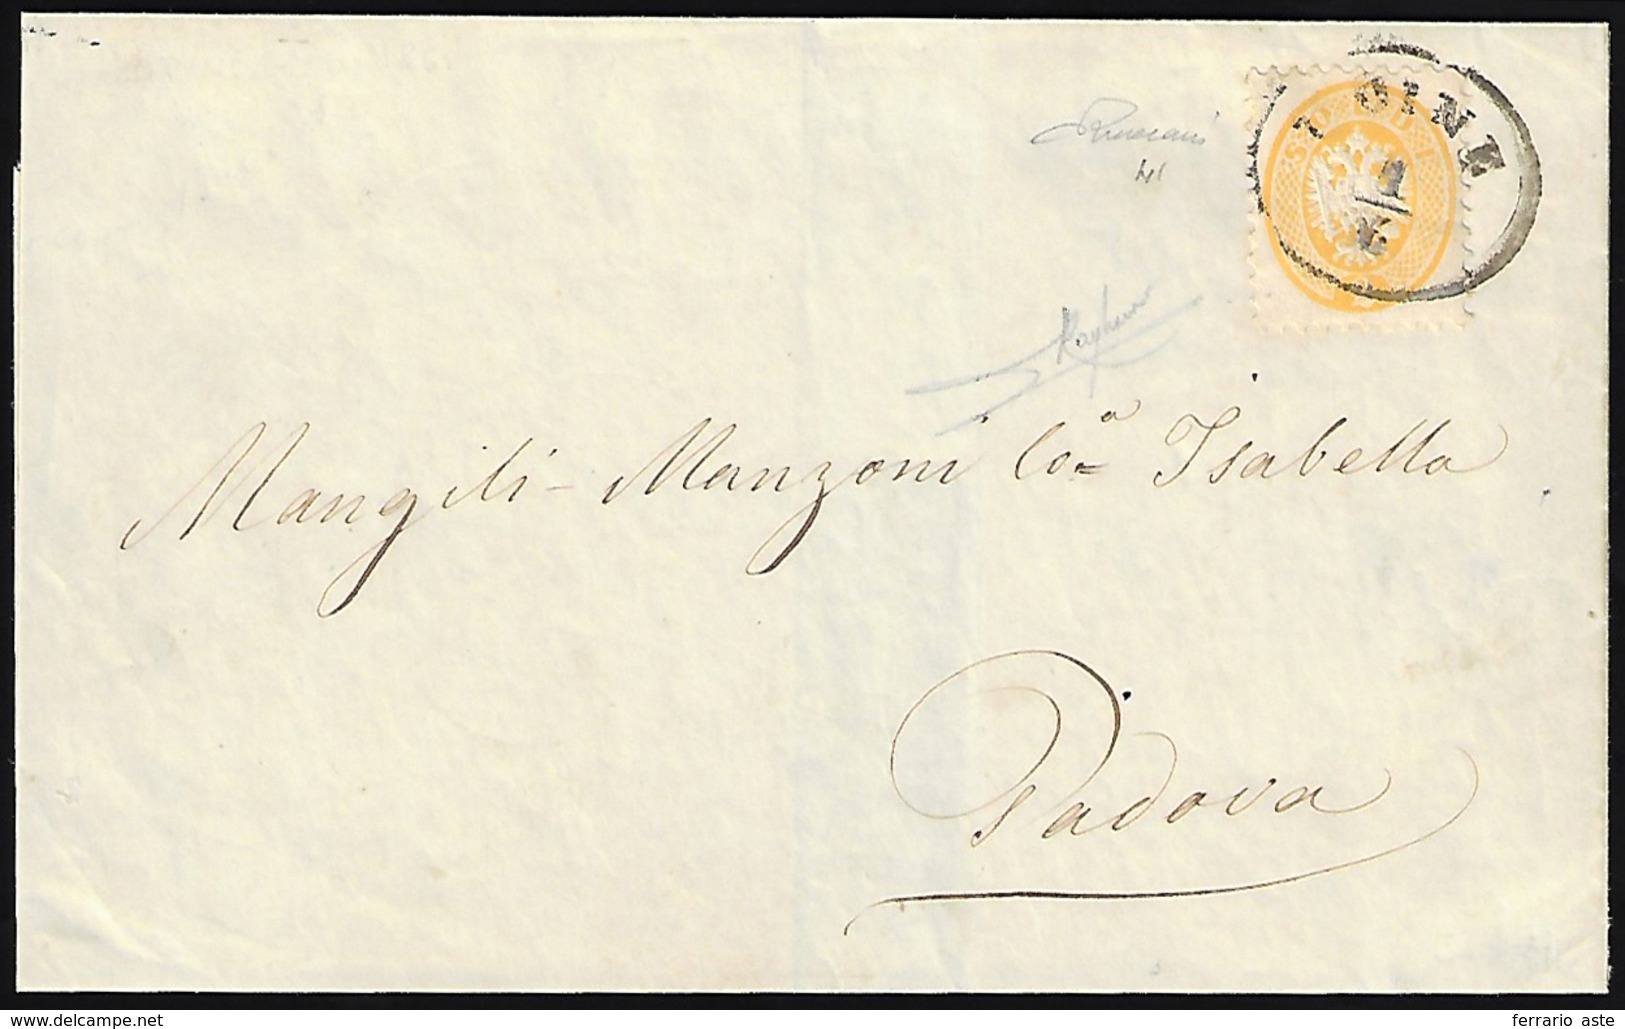 SOLDI
UDINE
1/
Mangili-Manzoni Co=a Isabella
Padova
www.delcampe.net
ferrario aste